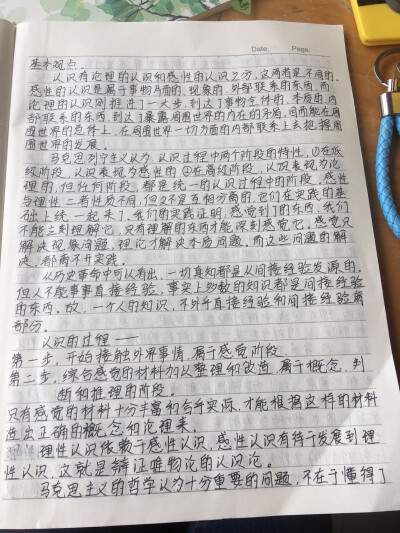 Date. Page.
基本观点.
认识有论理的认识和感性的认识之分,这两者是不同的.
感性的认识是属于事物片面的、现象的、外部联系的东西,而
论理的认识则推进了一大步,到达了事物全体的、本质的、内
部联系的东西,到达了暴露周围世界的内在的矛盾,因而能在周
围世界的总体上,在周围世界一切方面的内部联系上去把握周围
世界的发展。
马克思列宁主义认为:认识过程中两个阶段的特性,①在低
级阶段,认识表现为感性的②在高级阶段,认识表现为论
理的,但任何阶段,都是统一的认识过程中的阶段,感性
与理性,二者性质不同,但又不是互相分离的,它们在实践的基
础上统一起来了,我们的实践证明,感觉到了的东西,我们
不能立刻理解它,只有理解的东西才能深刻感觉它,感觉只
解决现象问题,理论才解决本质问题,而这些问题的解
决,都离不开实践。
从历史革命中可以看出,一切真知都是从间接经验发源的,
但人不能事事直接经验,事实上多数的知识都是间接经验
的东西,故,一个人的知识,不外乎直接经验和间接经验两
部分。
认识的过程——
第一步,开始接触外界事情,属于感觉阶段
第二步,综合感觉的材料加以整理和改造,属于概念、判
断和推理的阶段。
只有感觉的材料十分丰富和合乎实际,才能根据这样的材料
造出正确的概念和论理来。
理性认识依赖于感性认识,感性认识有待于发展到理
性认识,这就是辩证唯物论的认识论。
马克思主义的哲学认为十分重要的问题,不在于懂得了